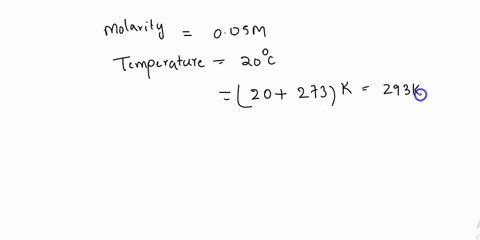 Molarity = 0.05M
Temperature = 20°C
= (20 + 273) K = 293K